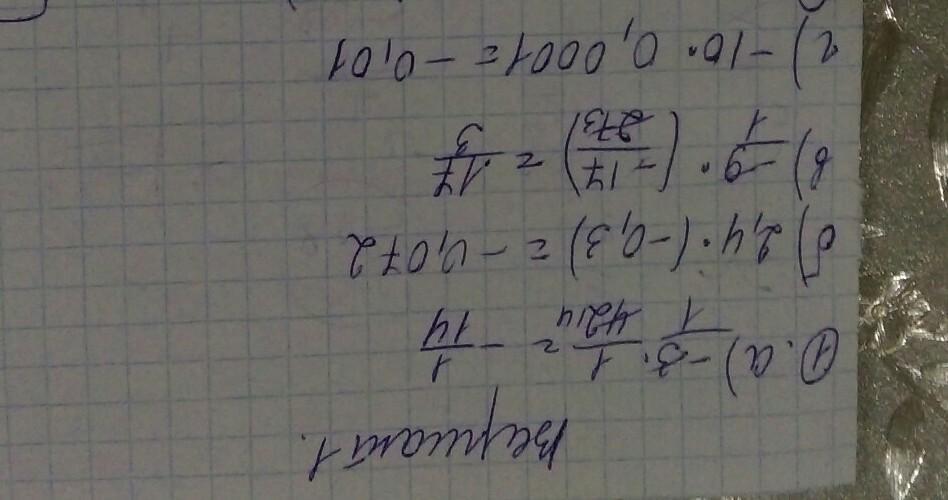 Вариант 1.
①. а) -3/1 · 1/42 14 = - 1/14
б) 2,4 · (-0,3) = -0,072
в) -9/1 · (-17/27 3) = 17/3
г) -10 · 0,0001 = -0,01